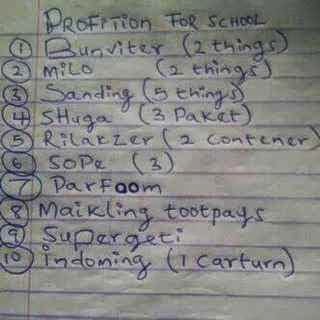 PROFITION FOR SCHOOL
1 Bunviter (2 things)
2 MiLO (2 things)
3 Sanding (5 things)
4 SHuga (3 Paket)
5 RilakZer (2 contener)
6 SOPe (3)
7 ParFoom
8 Maikling tootpays
9 Supergeti
10 indoming (1 carturn)